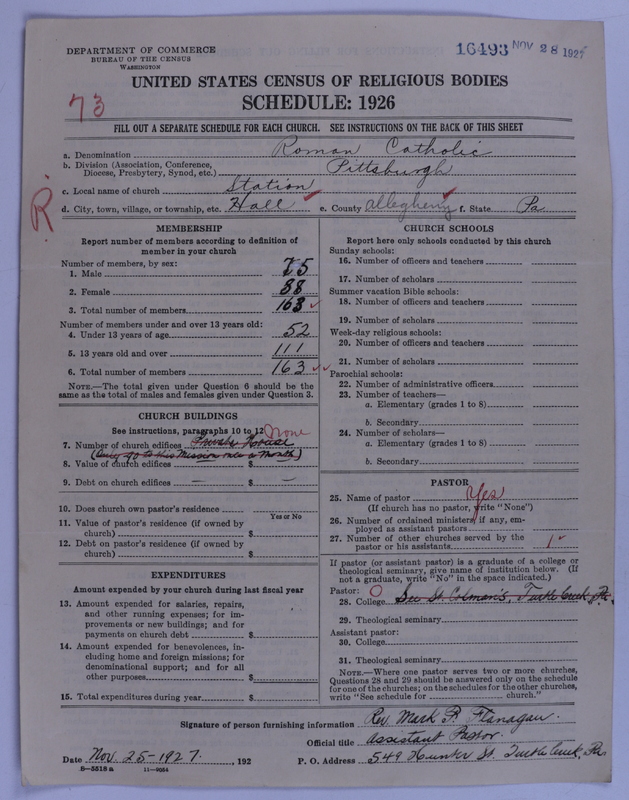 DEPARTMENT OF COMMERCE
BUREAU OF THE CENSUS
WASHINGTON
16493 NOV 28 192
UNITED STATES CENSUS OF RELIGIOUS BODIES
SCHEDULE: 1926
73
FILL OUT A SEPARATE SCHEDULE FOR EACH CHURCH. SEE INSTRUCTIONS ON THE BACK OF THIS SHEET
a. Denomination Roman Catholic
b. Division (Association, Conference, Diocese, Presbytery, Synod, etc.) Pittsburgh
c. Local name of church Station
R.
d. City, town, village, or township, etc. Hall e. County Allegheny f. State Pa
MEMBERSHIP
Report number of members according to definition of
member in your church
Number of members, by sex:
1. Male 75
2. Female 88
3. Total number of members 163
Number of members under and over 13 years old:
4. Under 13 years of age 52
5. 13 years old and over 111
6. Total number of members 163
NOTE.—The total given under Question 6 should be the
same as the total of males and females given under Question 3.
CHURCH BUILDINGS
See instructions, paragraphs 10 to 12 None
7. Number of church edifices Private House
(Only go to this Mission once a month)
8. Value of church edifices — $
9. Debt on church edifices — $ —
10. Does church own pastor's residence
Yes or No
11. Value of pastor's residence (if owned by
church) $
12. Debt on pastor's residence (if owned by
church) $
EXPENDITURES
Amount expended by your church during last fiscal year
13. Amount expended for salaries, repairs,
and other running expenses; for im-
provements or new buildings; and for
payments on church debt $
14. Amount expended for benevolences, in-
cluding home and foreign missions; for
denominational support; and for all
other purposes $
15. Total expenditures during year $
CHURCH SCHOOLS
Report here only schools conducted by this church
Sunday schools:
16. Number of officers and teachers
17. Number of scholars
Summer vacation Bible schools:
18. Number of officers and teachers
19. Number of scholars
Week-day religious schools:
20. Number of officers and teachers
21. Number of scholars
Parochial schools:
22. Number of administrative officers
23. Number of teachers—
a. Elementary (grades 1 to 8)
b. Secondary
24. Number of scholars—
a. Elementary (grades 1 to 8)
b. Secondary
PASTOR
25. Name of pastor Yes
(If church has no pastor, write "None")
26. Number of ordained ministers, if any, em-
ployed as assistant pastors
27. Number of other churches served by the
pastor or his assistants 1
If pastor (or assistant pastor) is a graduate of a college or
theological seminary, give name of institution below. (If
not a graduate, write "No" in the space indicated.)
Pastor: O
28. College See St. Colman's, Turtle Creek, Pa.
29. Theological seminary
Assistant pastor:
30. College
31. Theological seminary
NOTE.—Where one pastor serves two or more churches,
Questions 28 and 29 should be answered only on the schedule
for one of the churches; on the schedules for the other churches,
write "See schedule for church."
Signature of person furnishing information Rev. Mark P. Flanagan.
Official title Assistant Pastor.
Date Nov. 25-1927., 192 P. O. Address 549 Hunter St. Turtle Creek, Pa.
8—5518a 11—9054